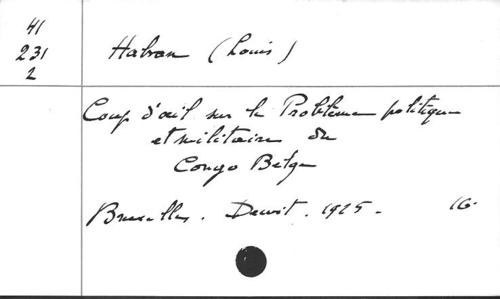 41
231
2
Habran (Louis)
Coup d'œil sur le Problème politique
et militaire du
Congo Belge
Bruxelles. Dewit. 1925. 16.